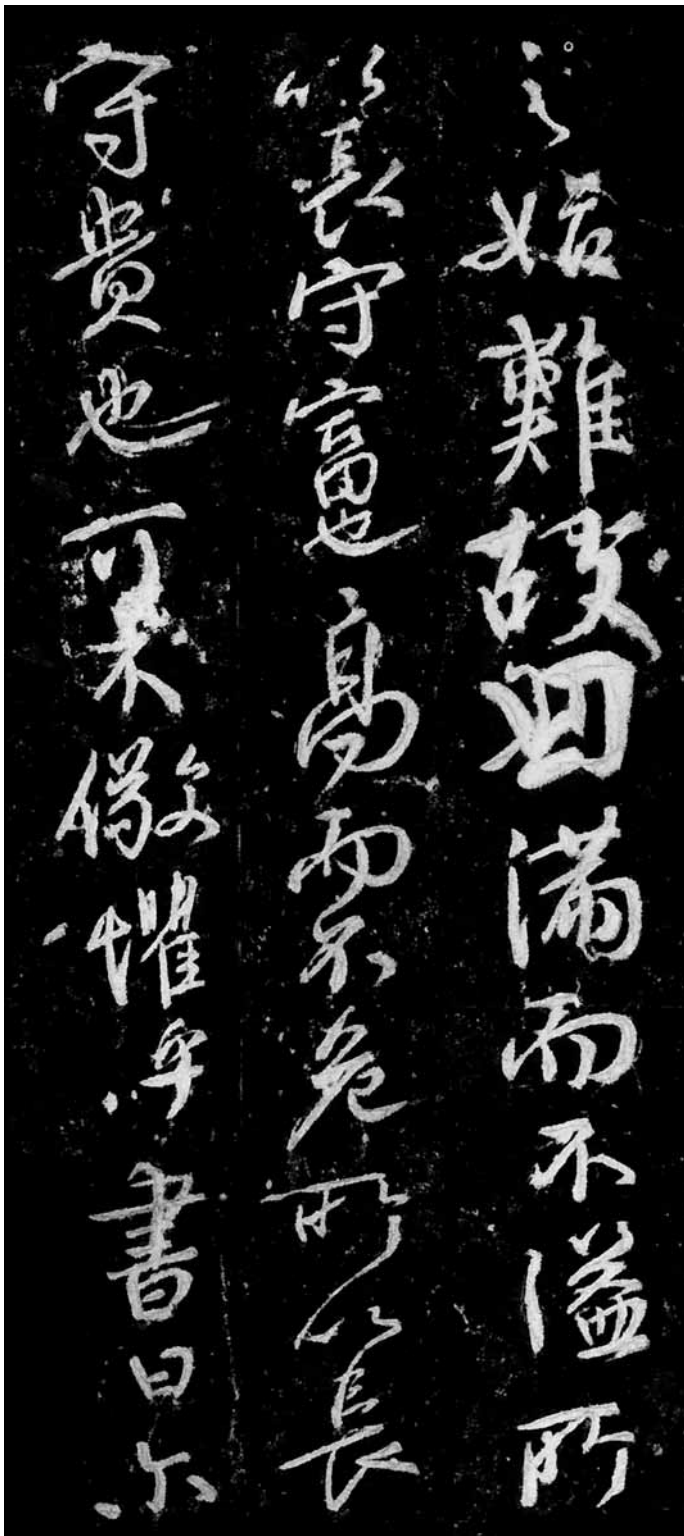 之始難故曰滿而不溢所
以長守富也高而不危所以長
守貴也可不儆懼乎書曰尔